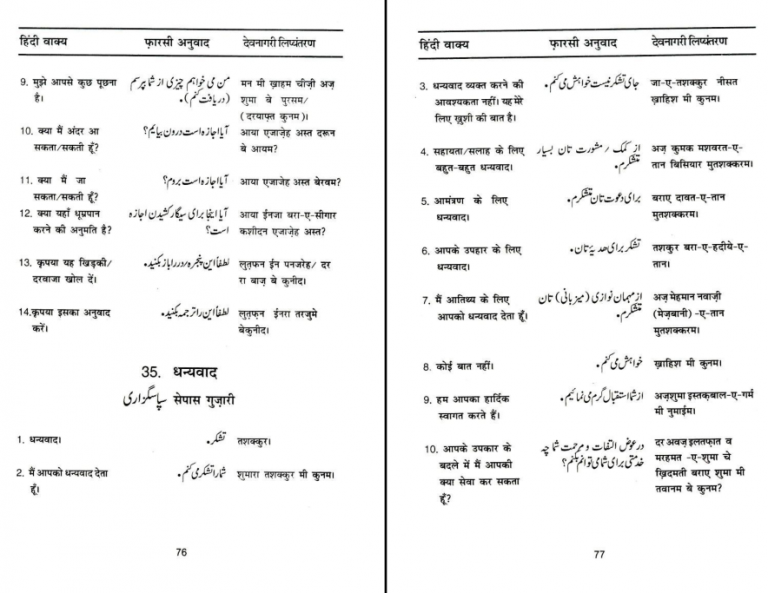 हिंदी वाक्य फ़ारसी अनुवाद देवनागरी लिप्यंतरण
9. मुझे आपसे कुछ पूछना من می خواہم چیزی از شما بپرسم मन मी ख़ाहम चीज़ी अज़
है। (دریافت کنم)۔ शुमा बे पुरसम/
( दरयाफ़्त कुनम )।
10. क्या मैं अंदर आ آیا اجازہ است درون بیایم؟ आया एजाज़ेह अस्त दरून
सकता/सकती हूँ? बे आयम?
11. क्या मैं जा آیا اجازہ است بروم؟ आया एजाज़ेह अस्त बेरवम?
सकता/सकती हूँ?
12. क्या यहाँ धूम्रपान آیا اینجا برای سیگار کشیدن اجازہ आया ईनजा बरा-ए-सीगार
करने की अनुमति है? است؟ कशीदन एजाज़ेह अस्त?
13. कृपया यह खिड़की/ لطفاً این پنجرہ/در را باز بکنید۔ लुतफ़न ईन पनजरेह/ दर
दरवाजा खोल दें। रा बाज़ बे कुनीद।
14.कृपया इसका अनुवाद لطفاً این را ترجمہ بکنید۔ लुतफ़न ईनरा तरजुमे
करें। बेकुनीद।
35. धन्यवाद
سپاسگزاری सेपास गुज़ारी
1. धन्यवाद। تشکر۔ तशक्कुर।
2. मैं आपको धन्यवाद देता شما را تشکر می کنم۔ शुमारा तशक्कुर मी कुनम।
हूँ।
76
हिंदी वाक्य फ़ारसी अनुवाद देवनागरी लिप्यंतरण
3. धन्यवाद व्यक्त करने की جای تشکر نیست خواہش می کنم۔ जा-ए-तशक्कुर नीसत
आवश्यकता नहीं। यह मेरे ख़ाहिश मी कुनम।
लिए ख़ुशी की बात है।
4. सहायता/सलाह के लिए از کمک / مشورت تان بسیار अज़ कुमक मशवरत-ए-
बहुत-बहुत धन्यवाद। متشکرم۔ तान बिसियार मुतशक्करम।
5. आमंत्रण के लिए برای دعوت تان متشکرم۔ बराए दावत-ए-तान
धन्यवाद। मुतशक्करम।
6. आपके उपहार के लिए تشکر برای ھدیۂ تان۔ तशकुर बरा-ए-हदीये-ए-
धन्यवाद। तान।
7. मैं आतिथ्य के लिए از مہمان نوازی (میزبانی) تان अज़ मेहमान नवाज़ी
आपको धन्यवाद देता हूँ। متشکرم۔ (मेज़बानी) -ए-तान
मुतशक्करम।
8. कोई बात नहीं। خواہش می کنم۔ ख़ाहिश मी कुनम।
9. हम आपका हार्दिक از شما استقبال گرم می نمائیم۔ अज़शुमा इस्तक़बाल-ए-गर्म
स्वागत करते हैं। मी नुमाईम।
10. आपके उपकार के در عوض التفات و مرحمت شما چہ दर अवज़ इलतफ़ात व
बदले में मैं आपकी خدمتی برای شما می توانم بکنم؟ मरहमत -ए-शुमा चे
क्या सेवा कर सकता ख़िदमती बराए शुमा मी
हूँ? तवानम बे कुनम?
77